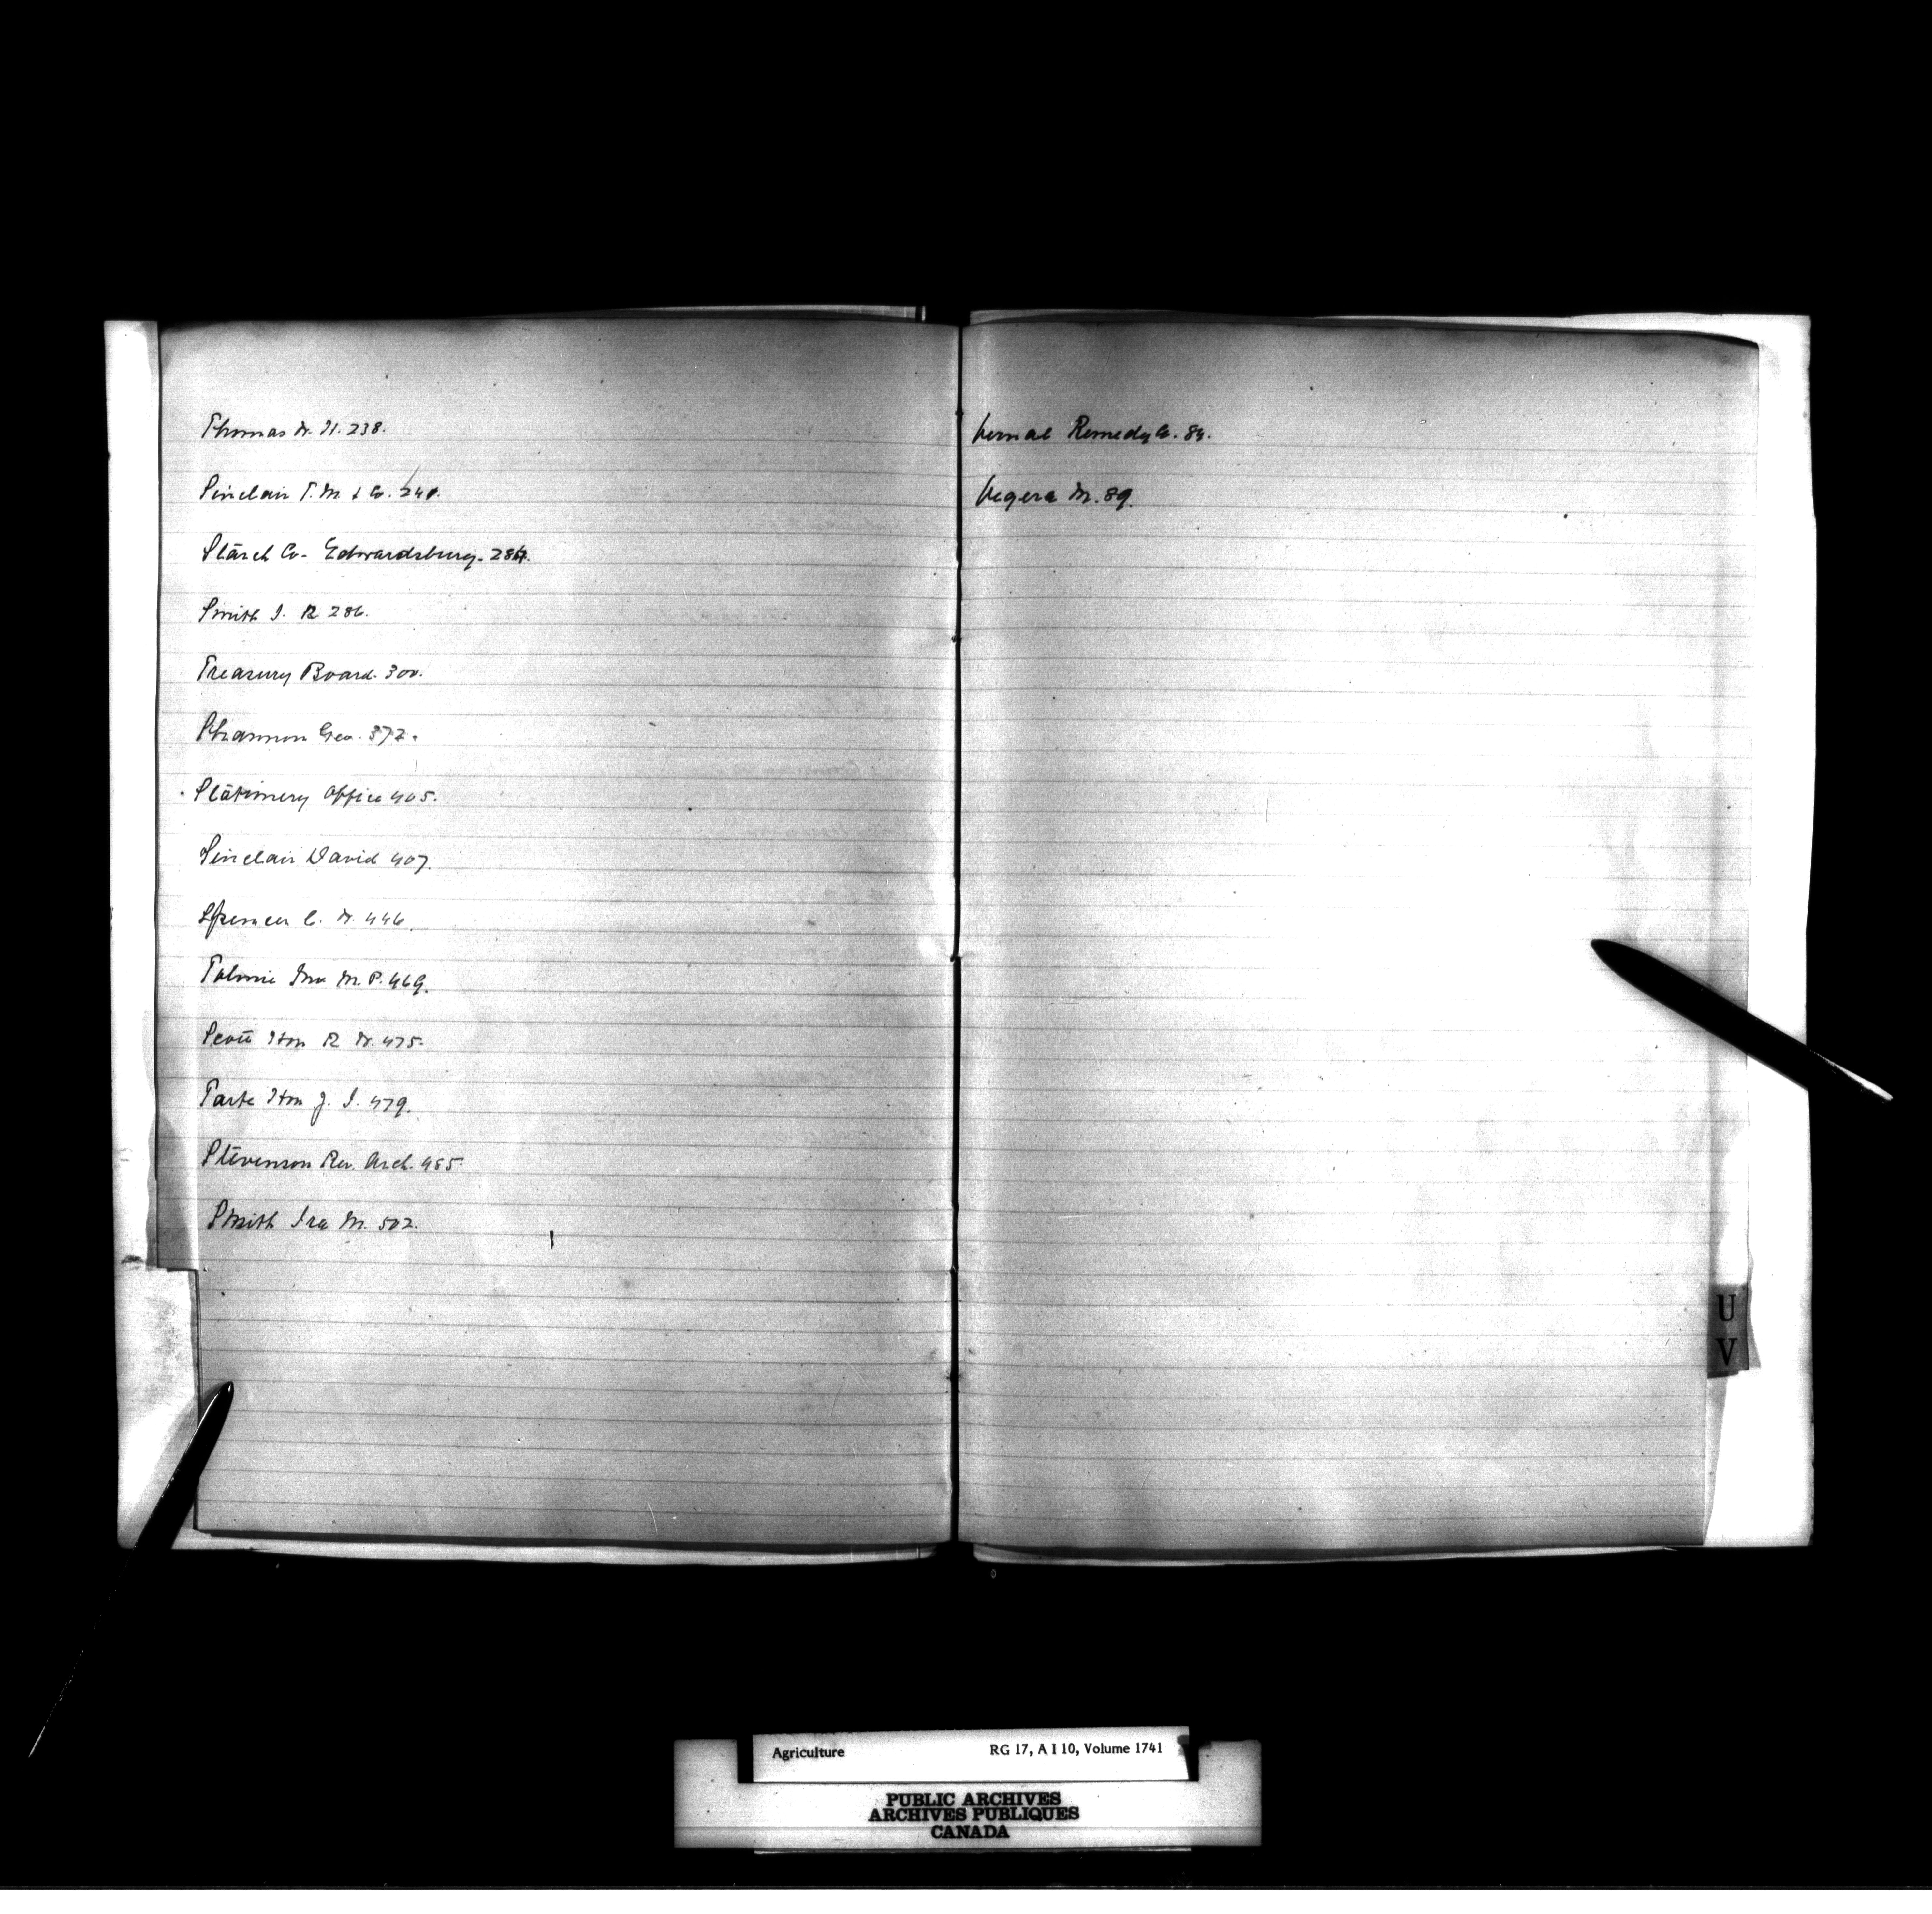 Thomas W. H. 238.
Sinclair T. M. & Co. 240.
Starch Co. Edwardsburg. 284.
Smith I. R 286.
Treasury Board. 300.
Shannon Geo. 372.
Stationery Office 405.
Sinclair David 407.
Spencer C. W. 446.
Tolmie M. P. 469.
Scott Hon R W. 475.
Tarte Hon J. I. 479.
Stevenson Rev. Arch. 485.
Smith Ira M. 502.
Vernal Remedy Co. 84.
Vegera M. 89.
U
V
Agriculture RG 17, A I 10, Volume 1741
PUBLIC ARCHIVES
ARCHIVES PUBLIQUES
CANADA